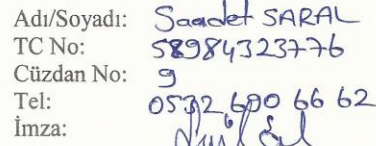 Adı/Soyadı: Saadet SARAL
TC No: 58984323776
Cüzdan No: 9
Tel: 0532 600 66 62
İmza: